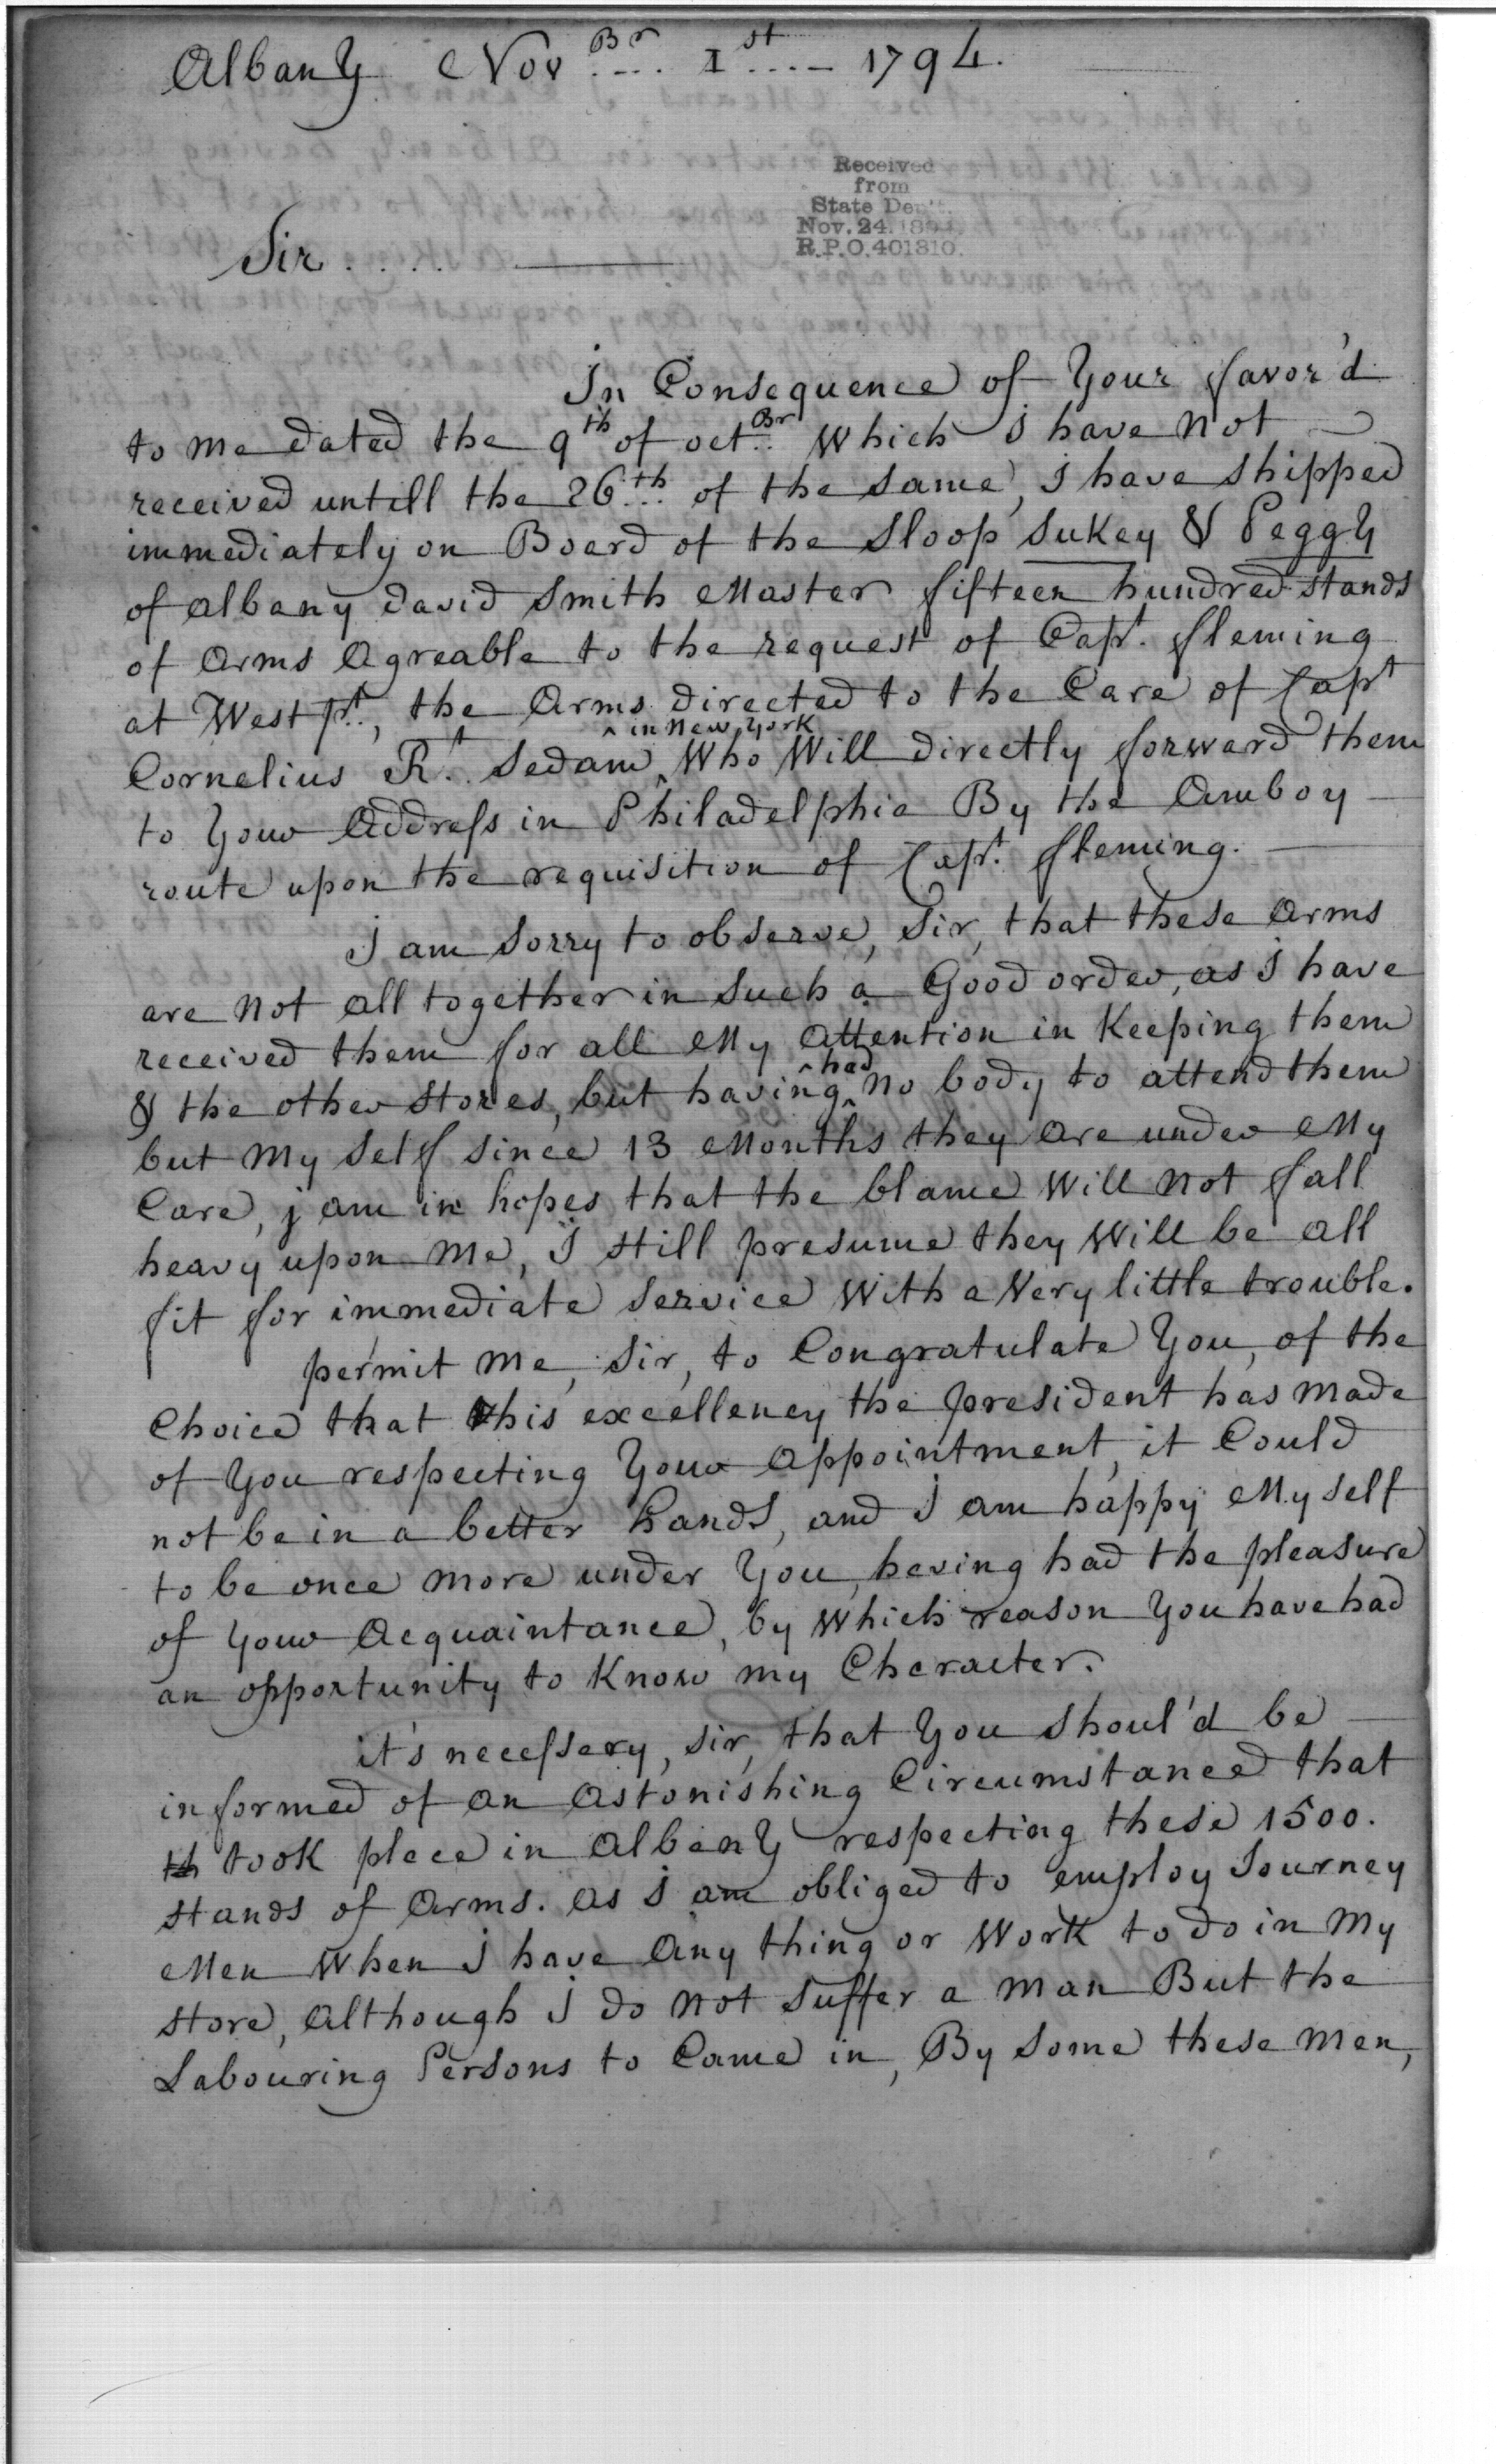 Albany Nov.Br.... 1st.... 1794.
Received
from
State Dep't.
Nov. 24. 189
R.P.O. 401310.
Sir.....
In Consequence of Your favor'd
to me dated the 9th of octBr. Which I have Not
received untill the 26th... of the same, I have shipped
immediately on Board of the Sloop Sukey & Peggy
of albany david Smith Master fifteen hundred stands
of Arms Agreable to the request of Capt. fleming
at West pt., the Arms directed to the Care of Capt
Cornelius Rt. Sedam ^ in New york Who Will directly forward them
to Your Address in Philadelphia By the Amboy
route upon the requisition of Capt. fleming.
I am Sorry to observe, Sir, that these Arms
are Not all together in Such a Good order, as I have
received them for all My Attention in Keeping them
& the other Stores, but having ^ had No body to attend them
but My Self Since 13 Months they Are under My
Care, j am in hopes that the blame Will Not fall
heavy upon Me, I still presume they Will be all
fit for immediate Service With a Very little trouble.
permit Me, Sir, to Congratulate You, of the
Choice that his excellency the president has Made
of You respecting Your Appointment, it Could
not be in a better hands, and I am happy My Self
to be once More under You, having had the pleasure
of Your Acquaintance, by Which reason You have had
an opportunity to Know my Character.
it's necessary, Sir, that You shoul'd be
informed of An Astonishing Circumstance that
th took place in Albany respecting these 1500.
stands of Arms. As I am obliged to employ Journey
Men When I have Any thing or Work to do in My
Store, Although I do Not Suffer a Man But the
Labouring Persons to Came in, By Some these Men,